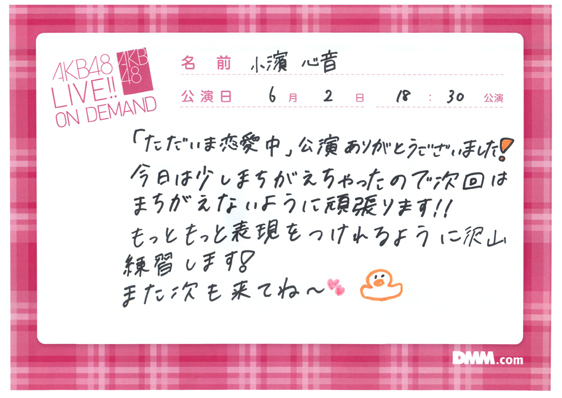 AKB48
LIVE!!
ON DEMAND
AKB
48
名前 小濱 心音
公演日 6月 2日 18:30 公演
「ただいま恋愛中」公演ありがとうございました!
今日は少しまちがえちゃったので次回は
まちがえないように頑張ります!!
もっともっと表現をつけれるように沢山
練習します!
また次も来てね〜
DMM.com